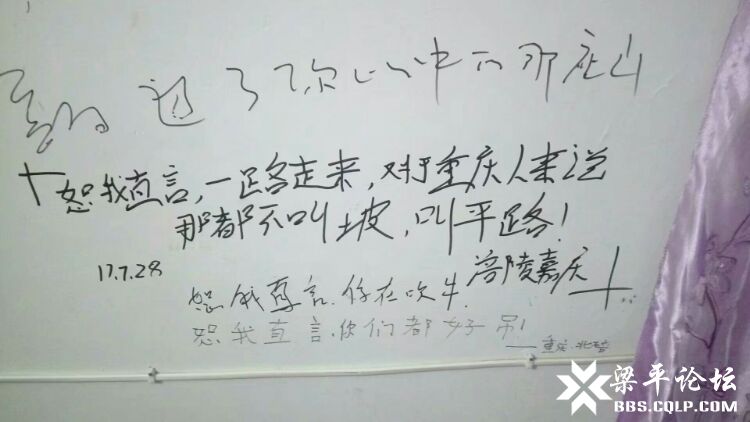 翻过了你心中的那座山
恕我直言,一路走来,对于重庆人来说
那都不叫坡,叫平路!
17.7.28
涪陵嘉庆
恕我直言.你在吹牛
恕我直言.你们都好吊!
——重庆·北碚
梁平论坛
BBS.CQLP.COM